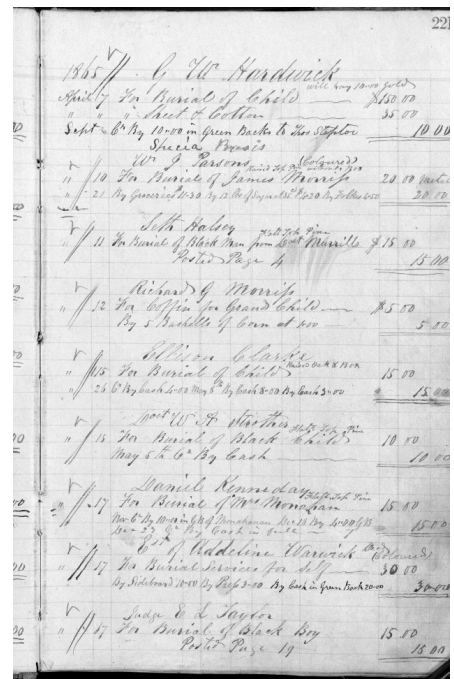 221
1865 G W Hardwick
will pay 10.00 gold
April 7 For Burial of Child $150.00
" " " Sheet & Cotton 35.00
Sept Cr By 10.00 in Green Backs to Thos 10 00
Specia Basis
Wm J Parsons (Coloured)
" 10 For Burial of James Morriss 20.00
" 21 By Groceries 11.30 By 4.20 By 4.50 20.00
Seth Halsey
Flat Top Pine
" 11 For Burial of Black Man from Doct Murrille $15.00
Posted Page 4 15 00
Richard G Morriss
" 12 For Coffin for Grand Child $5.00
By 5 Bushells of Corn at 5 00
Ellison Clarke
" 15 For Burial of Child 15 00
26 Cr By Cash 4.00 May 8th By Cash 8.00 By Cash 3.00 15 00
Doct W A Strother
Flat Top Pine
" 15 For Burial of Black Child 10 00
May 5th Cr By Cash 10 00
Daniel Kenneday
Flat Top Pine
" 17 For Burial of Mrs Monahan 15 00
Nov 6th By 10.00 in GB of Monahan Dec 13 By 4.00 GB 15 00
Cr By Cash in full
Est of Addeline Warwick (Coloured)
" 17 For Burial Services for Self 30 00
By Sideboard 10.00 By 3.00 By Cash in Green Back 20.00 30.00
Judge E L Taylor
" 17 For Burial of Black Boy 15.00
Posted Page 19 15 00